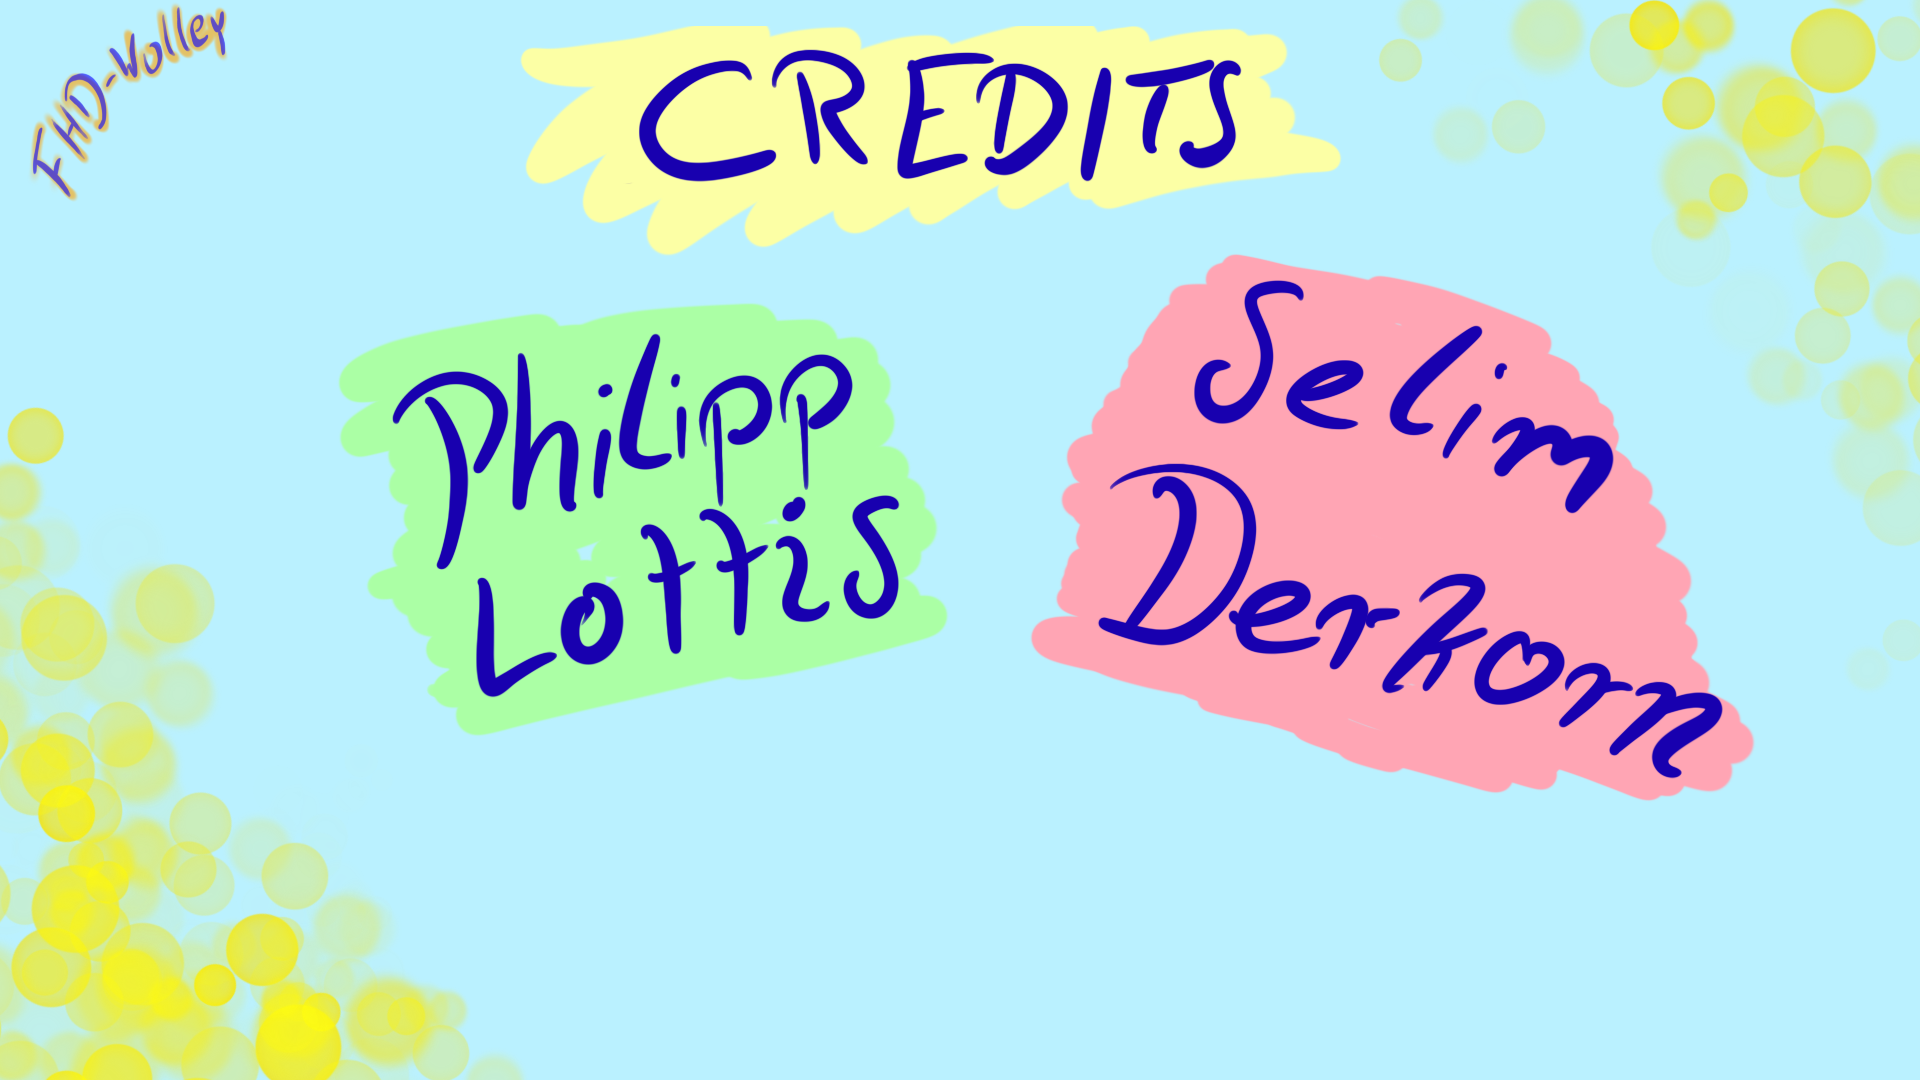 FHD-Volley
CREDITS
Philipp
Lottis
Selim
Derkorn